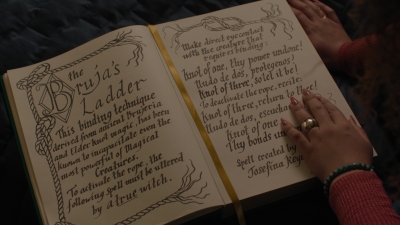 the
Bruja's
Ladder
This binding technique
derived from ancient Brujeria
and Elder Kodt magic, has been
known to incapacitate even the
most powerful of Magical
Creatures.
To activate the rope, the
following spell must be uttered
by a true witch.
Make direct eye contact
with the creature that
requires binding.
Knot of one, thy power undone!
Nudo de dos, protegenos!
Knot of three, so let it be!
To deactivate the rope, recite:
Knot of three, return to thee!
Nudo de dos,
Knot of one
Thy bonds
Spell created by
Josefina